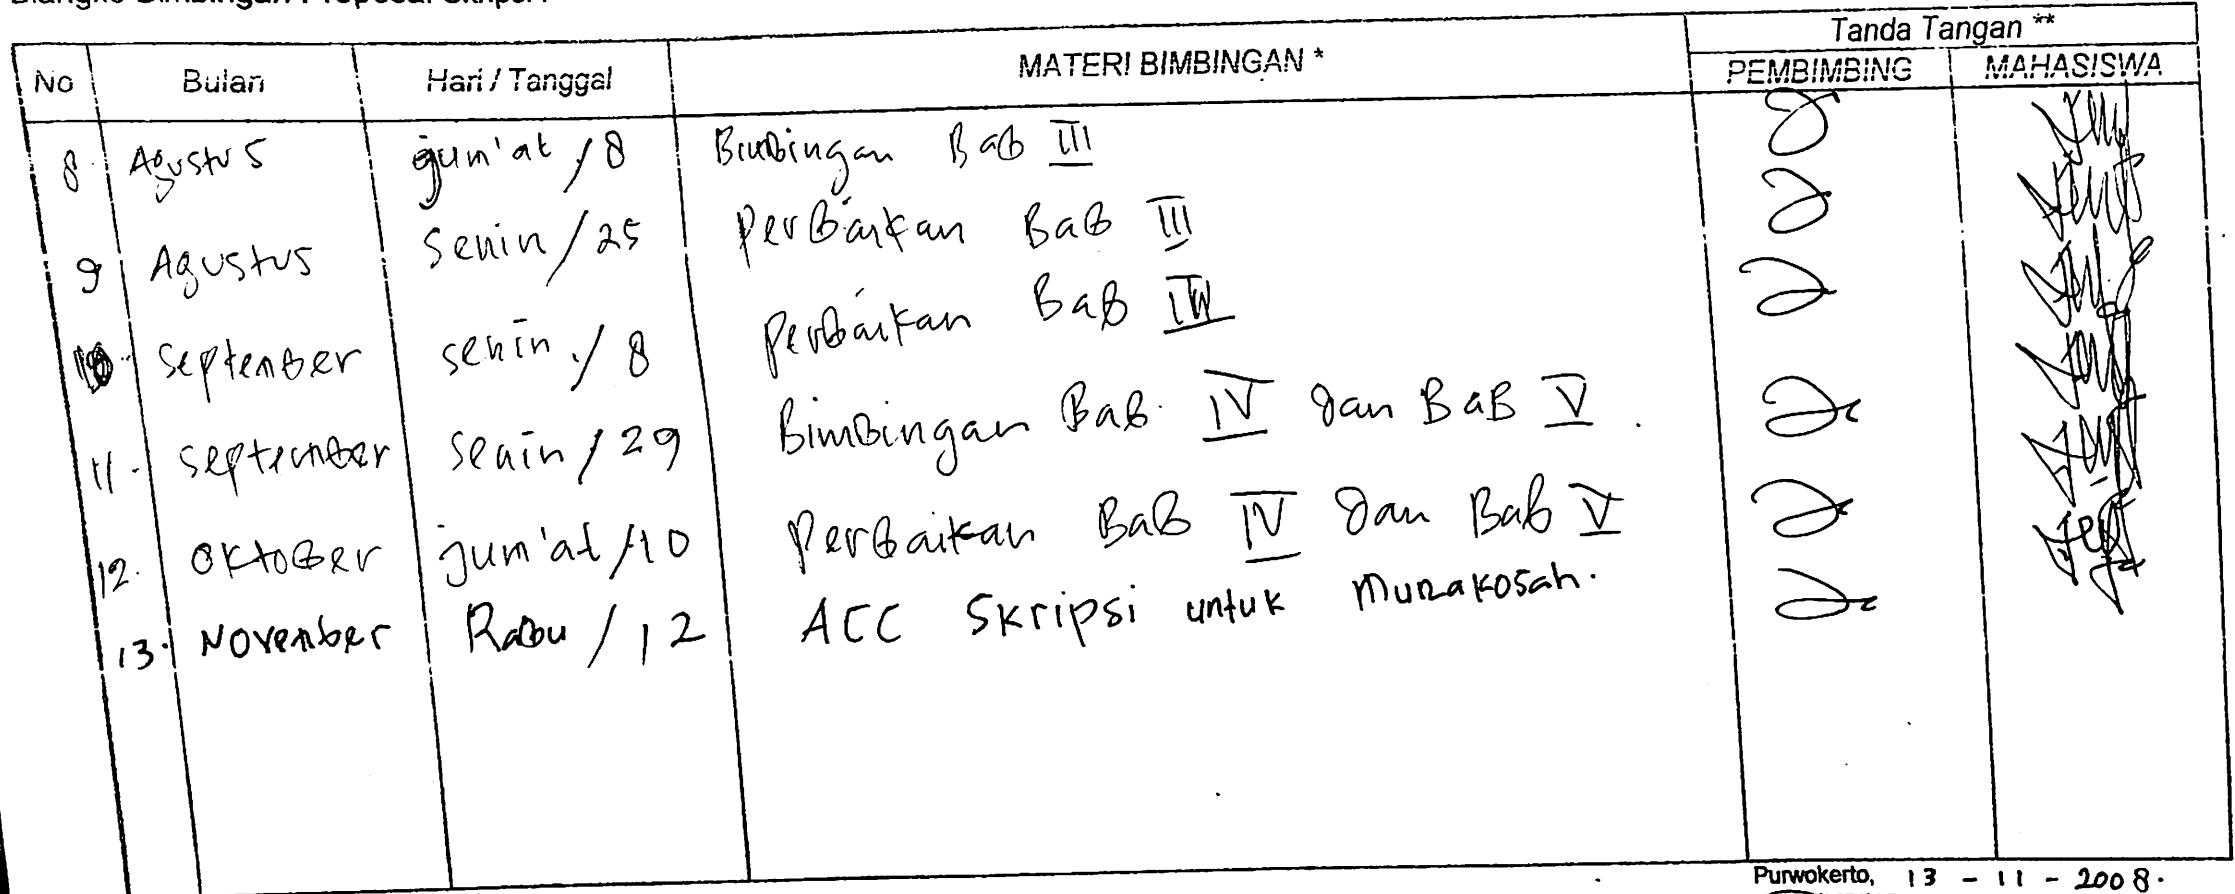 Blangko Bimbingan Proposal Skripsi
No Bulan Hari / Tanggal MATERI BIMBINGAN * Tanda Tangan **
PEMBIMBING MAHASISWA
8. Agustus jum'at / 8 Bimbingan Bab III
9 Agustus Senin / 25 Perbaikan Bab III
10. September senin / 8 Perbaikan Bab III
11. September senin / 29 Bimbingan Bab IV dan Bab V.
12. Oktober jum'at / 10 Perbaikan Bab IV dan Bab V
13. November Rabu / 12 ACC Skripsi untuk Munakosah.
Purwokerto, 13 - 11 - 2008.